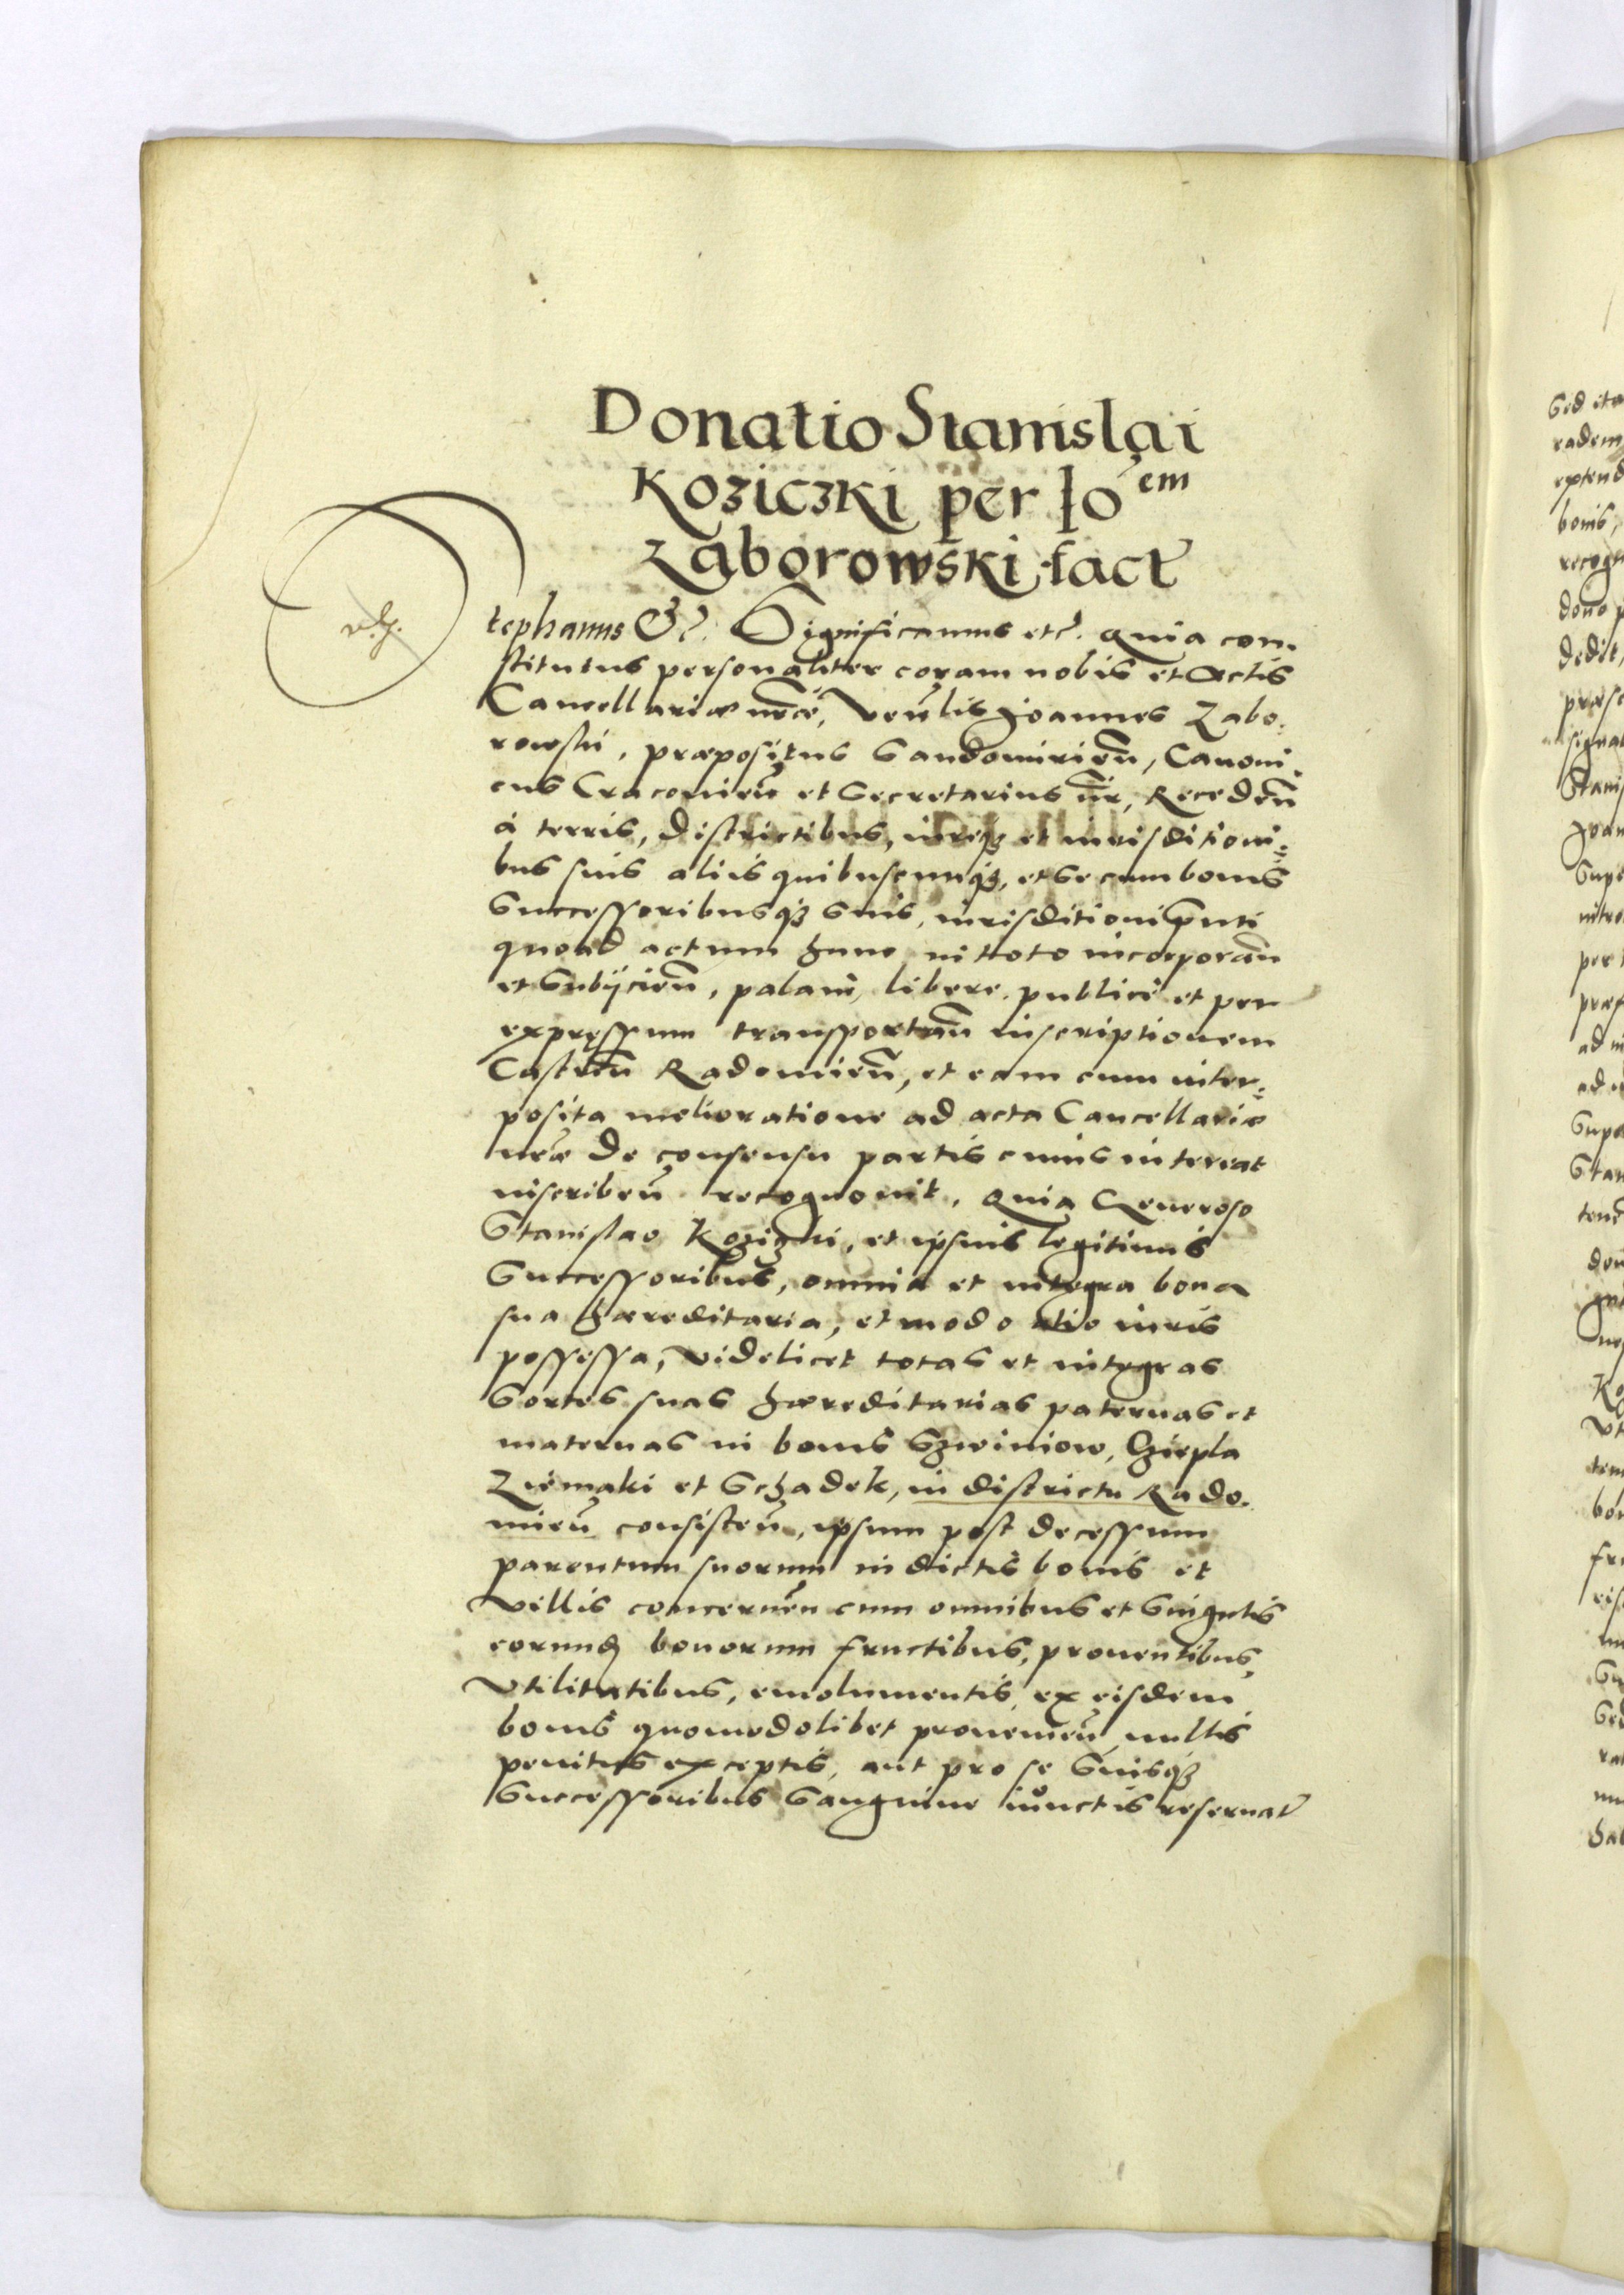 Donatio Stanislai
Koziczki per Io^em
Zaborowski fact
tephanus &c. Significamus etc. Quia con-
stitutus personaliter coram nobis et Actis
Cancellariæ nræ, Venlis Joannes Zabo-
rowski, præpositus Sandomirien, Canoni-
cus Cracovien et Secretarius nr, Receden
à terris, districtibus, iureq3 et iurisditioni=
bus suis aliis quibuscunq3, et se cum bonis
Successoribusq3 suis, iurisditioni pnti
quoad actum hunc in toto incorporan
et Subÿcien, palam, libere, publicè et per
expressum transportan inscriptionem
Castren Radomien, et eam cum inter=
posita melioratione ad acta Cancellariæ
nræ de consensu partis cuius interest
inscriben recognovit, Quia Generoso
Stanislao Koziczki, et ipsius legitimis
Successoribus, omnia et integra bona
sua hæreditaria, et modo alio iuris
possessa, videlicet totas et integras
Sortes suas hæreditarias paternas et
maternas in bonis Szwiniow, Cziepla
Ziemaki et Schadek, in districtu Rado-
mien consisten, ipsum post decessum
parentum suorum in dictis bonis et
Villis concernen cum omnibus et singulis
eorund bonorum fructibus, proventibus,
Vtilitatibus, emolumentis, ex eisdem
bonis quomodolibet provenien, nullis
penitus exceptis, aut pro se suisq3
Successoribus Sanguine iunctis reservat
Sed ita
eadem
extend
bonis,
recogn
dono p
dedit,
præse
signat
Stani
Joan
Supe
intro
per
præf
ad in